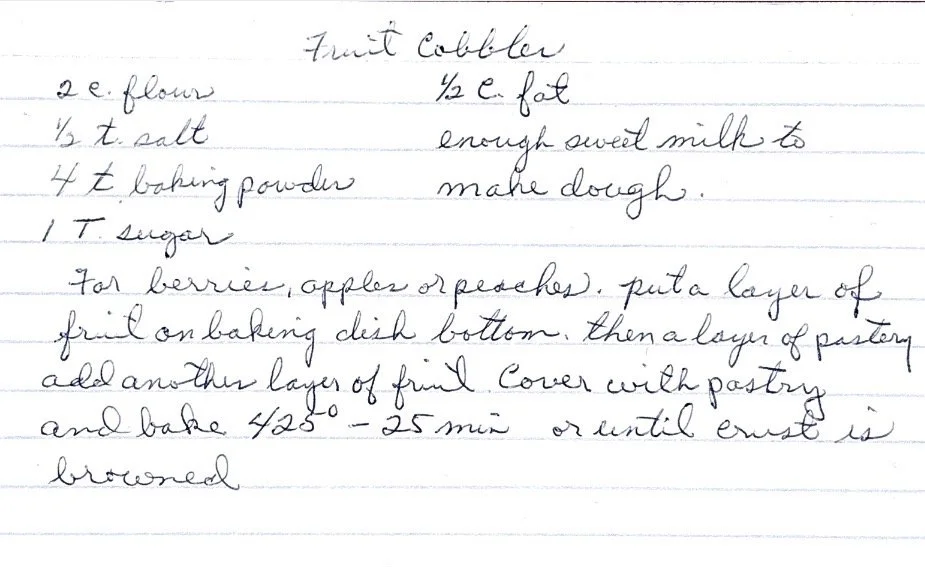 Fruit Cobbler
2 c. flour
½ t. salt
4 t. baking powder
1 T. sugar
½ C. fat
enough sweet milk to
make dough.
For berries, apples or peaches. put a layer of
fruit on baking dish bottom. then a layer of pastery
add another layer of fruit. Cover with pastry
and bake 425° - 25 min or until crust is
browned